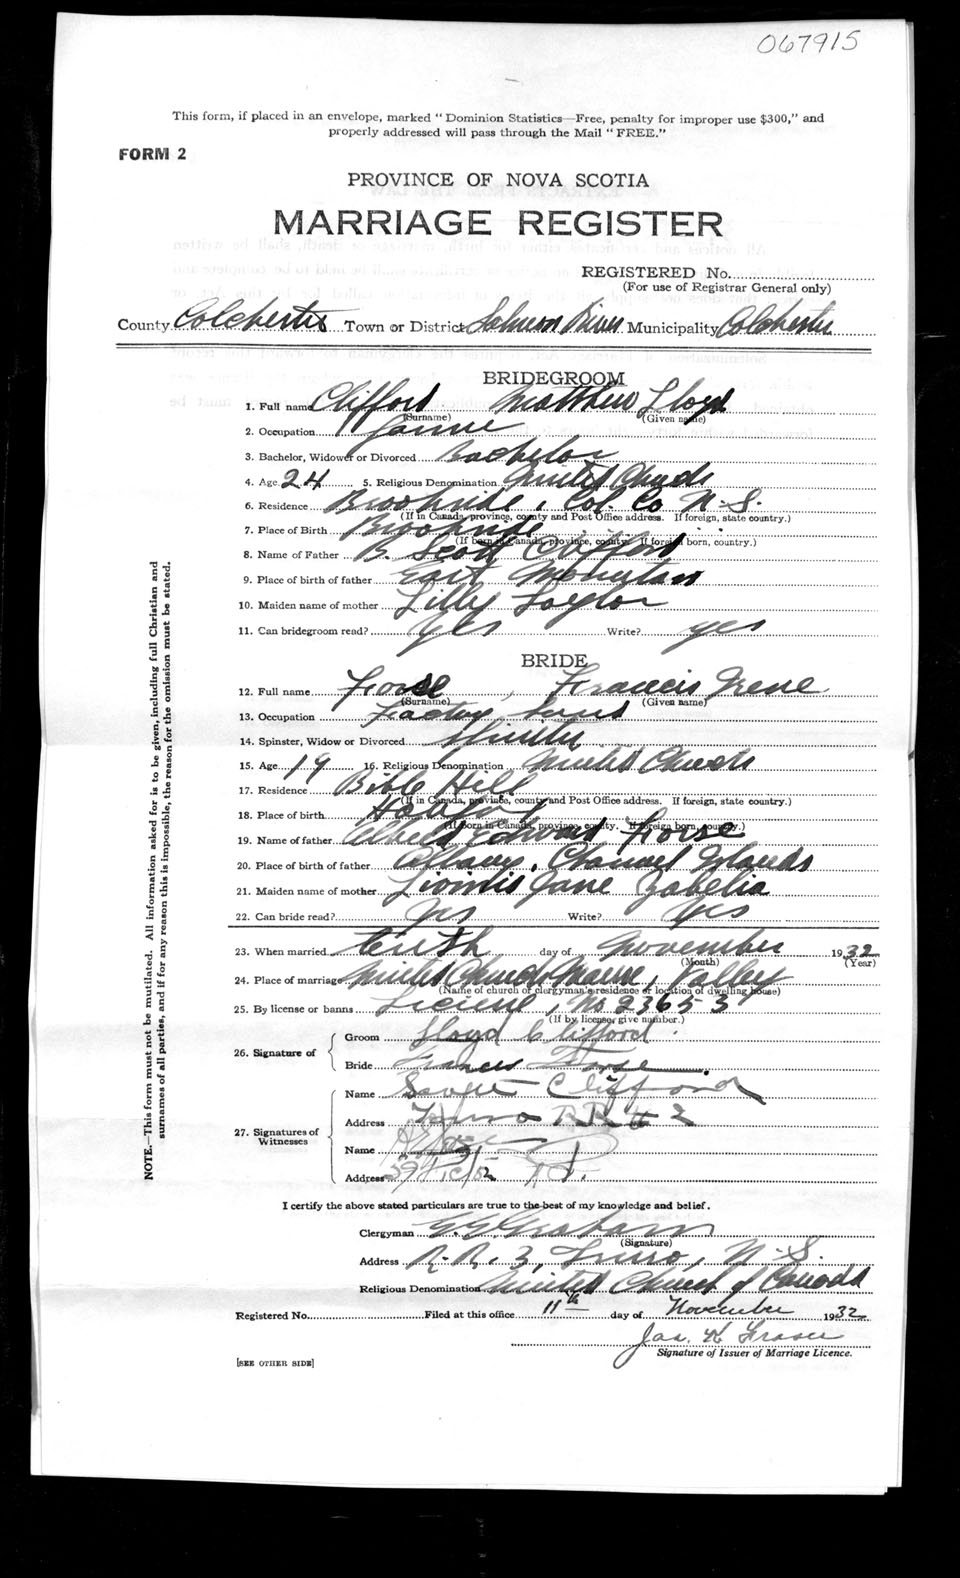 067915
This form, if placed in an envelope, marked " Dominion Statistics—Free, penalty for improper use $300," and
properly addressed will pass through the Mail " FREE."
FORM 2
PROVINCE OF NOVA SCOTIA
MARRIAGE REGISTER
REGISTERED No.
(For use of Registrar General only)
County Colchester Town or District Salmon River Municipality Colchester
BRIDEGROOM
1. Full name Clifford Matthew Lloyd
(Surname) (Given name)
2. Occupation
3. Bachelor, Widower or Divorced Bachelor
4. Age 24 5. Religious Denomination United Church
6. Residence Brookside, Col. Co N.S.
(If in Canada, province, county and Post Office address. If foreign, state country.)
7. Place of Birth Brookside
(If born in Canada, province, county. If foreign born, country.)
8. Name of Father B. Scott Clifford
9. Place of birth of father East Mountain
10. Maiden name of mother Lilly Taylor
11. Can bridegroom read? yes Write? yes
BRIDE
12. Full name Forse, Francis Irene
(Surname) (Given name)
13. Occupation Factory
14. Spinster, Widow or Divorced Spinster
15. Age 19 16. Religious Denomination United Church
17. Residence Bible Hill
(If in Canada, province, county and Post Office address. If foreign, state country.)
18. Place of birth
(If Born in Canada, province, county. If foreign born, country.)
19. Name of father Edward Forse
20. Place of birth of father Channel Islands
21. Maiden name of mother Jane Zabelia
22. Can bride read? yes Write? yes
23. When married tenth day of November 1932
(Month) (Year)
24. Place of marriage United Church Manse, Valley
(Name of church or clergyman's residence or location of dwelling house)
25. By license or banns License, No 23653
(If by license, give number.)
26. Signature of
Groom Lloyd Clifford
Bride Frances Forse
27. Signatures of Witnesses
Name Scott Clifford
Address Truro R R # 2
Name
Address
I certify the above stated particulars are true to the best of my knowledge and belief.
Clergyman G. G. Graham
(Signature)
Address R. R. 3, Truro, N. S.
Religious Denomination United Church of Canada
Registered No. Filed at this office 11th day of November 1932
Jas. K Fraser
Signature of Issuer of Marriage Licence.
[SEE OTHER SIDE]
NOTE.—This form must not be mutilated. All information asked for is to be given, including full Christian and
surnames of all parties, and if for any reason this is impossible, the reason for the omission must be stated.